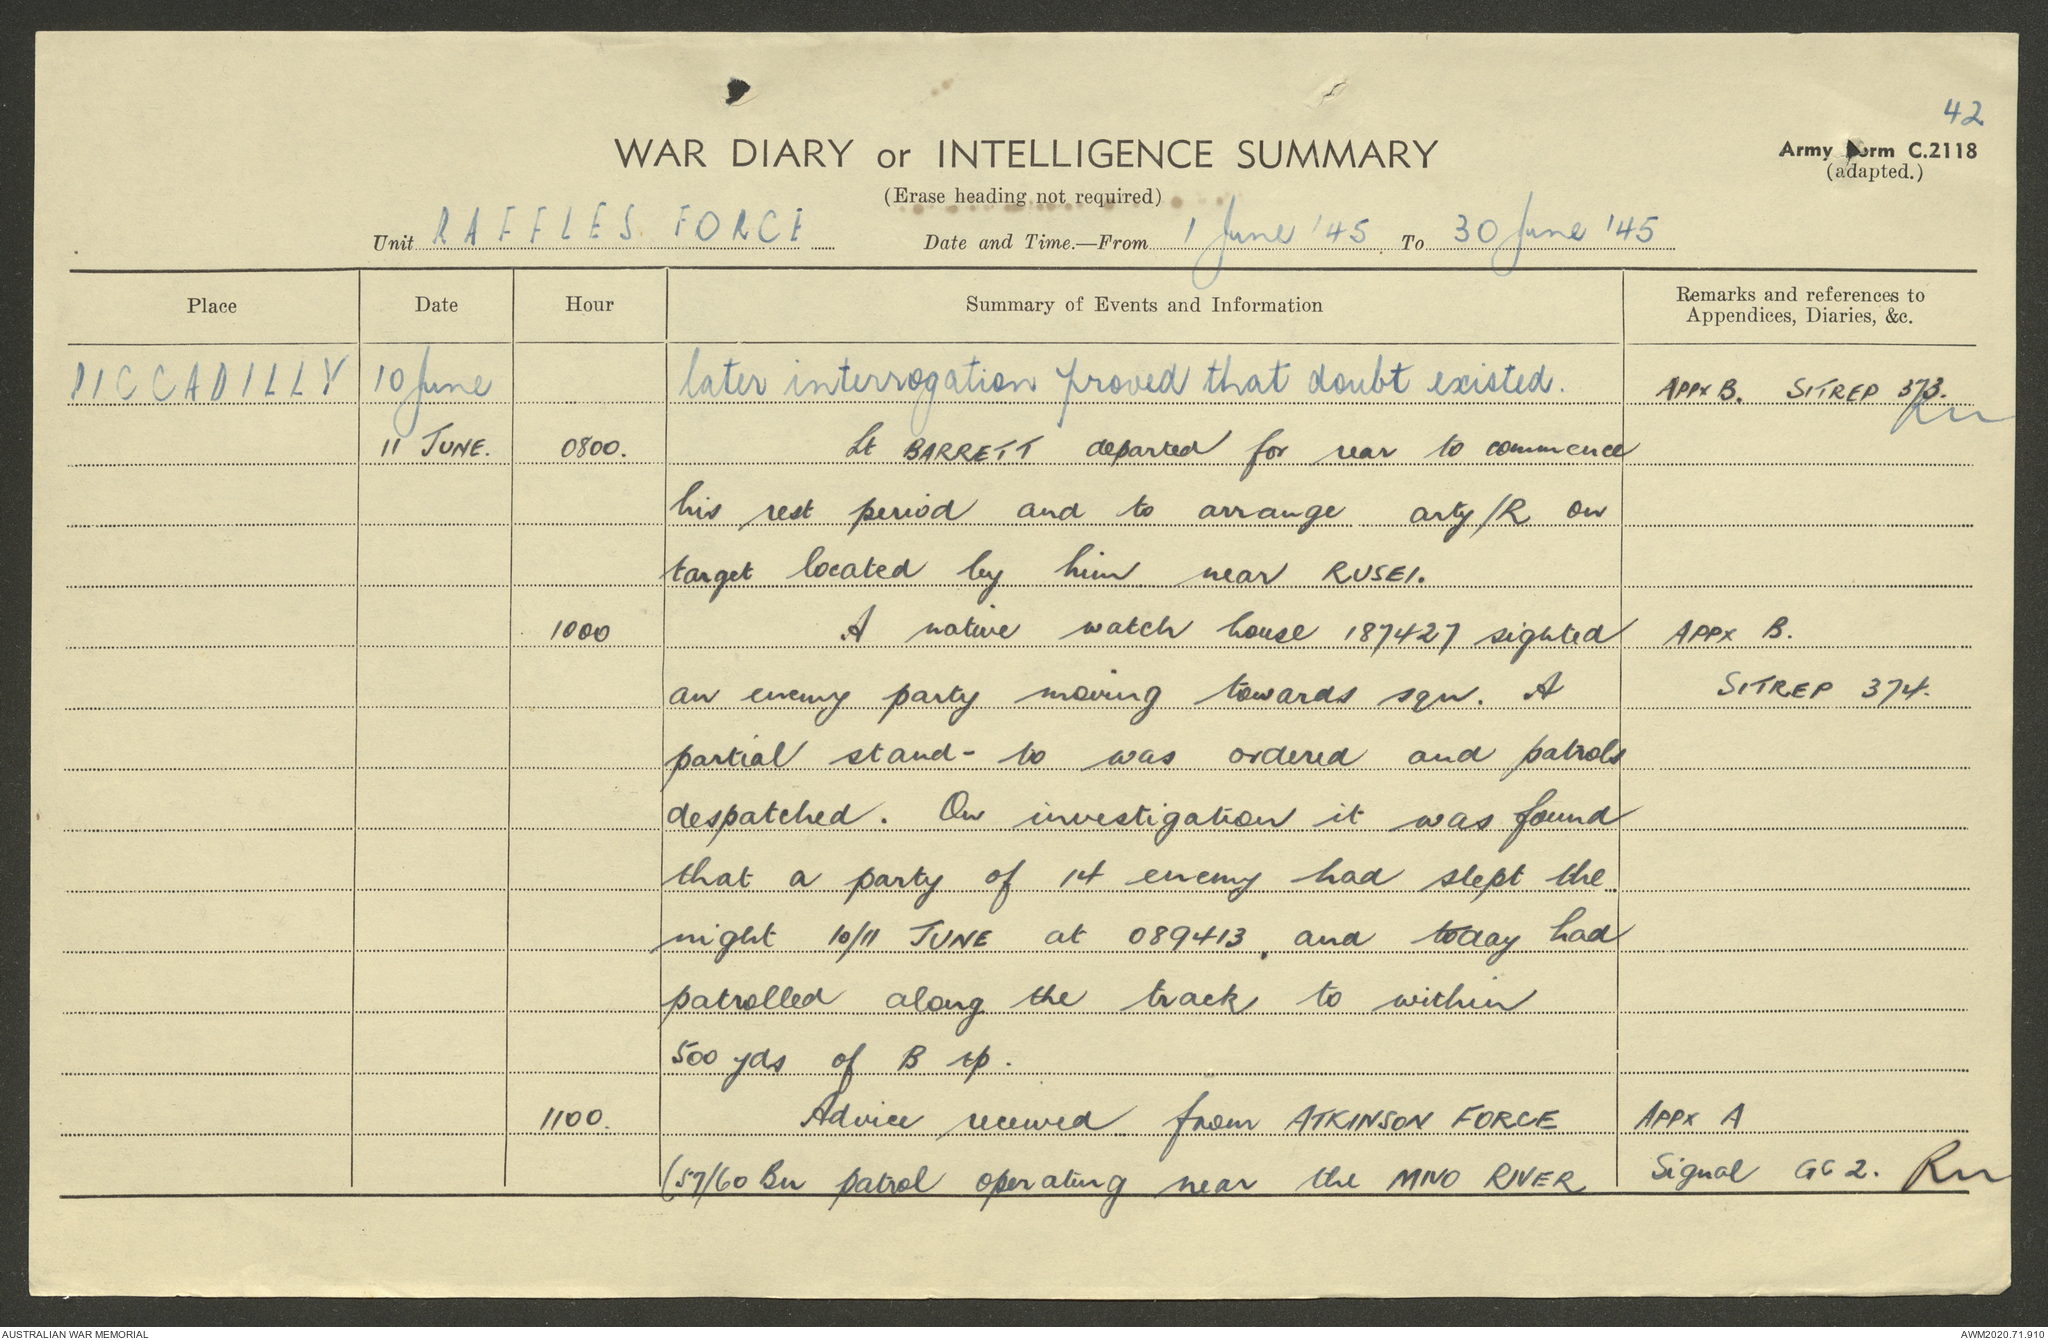 42
WAR DIARY or INTELLIGENCE SUMMARY
Army Form C.2118
(adapted.)
(Erase heading not required)
Unit RAFFLES FORCE Date and Time.—From 1 June '45 To 30 June '45
Place Date Hour Summary of Events and Information Remarks and references to Appendices, Diaries, &c.
PICCADILLY 10 June later interrogation proved that doubt existed. APPX B. SITREP 373.
11 JUNE. 0800. Lt BARRETT departed for rear to commence
his rest period and to arrange arty/R on
target located by him near RUSEI.
1000 A native watch house 187427 sighted APPX B.
an enemy party moving towards sqn. A SITREP 374.
partial stand-to was ordered and patrols
despatched. On investigation it was found
that a party of 14 enemy had slept the
night 10/11 JUNE at 089413, and today had
patrolled along the track to within
500 yds of B tp.
1100. Advice received from ATKINSON FORCE APPX A
(57/60 Bn patrol operating near the MIVO RIVER Signal GG 2.
AUSTRALIAN WAR MEMORIAL
AWM2020.71.910